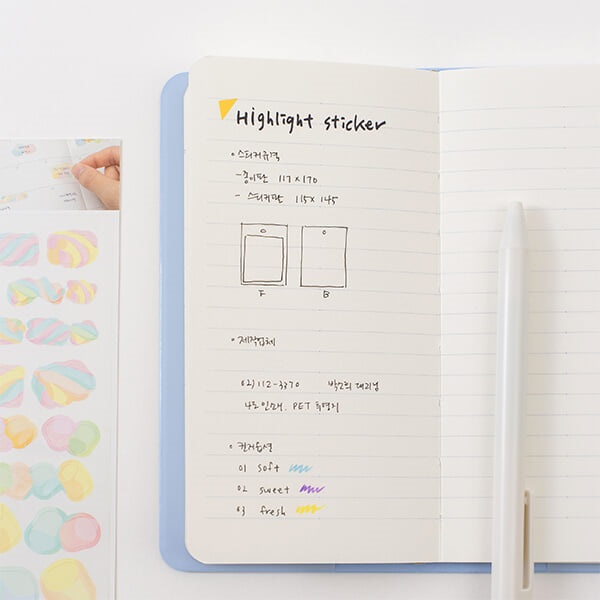 Highlight sticker
◦ 스티커규격
- 종이판 117 x 170
- 스티커판 115 x 145
F B
◦ 제작업체
02) 112-3370 박소희 대리님
나도인쇄. PET
◦ 컬러옵션
01 soft
02 sweet
03 fresh